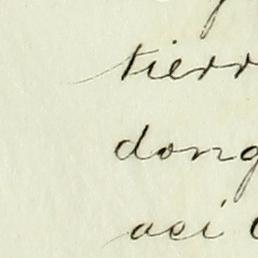 tierr
dong
aci